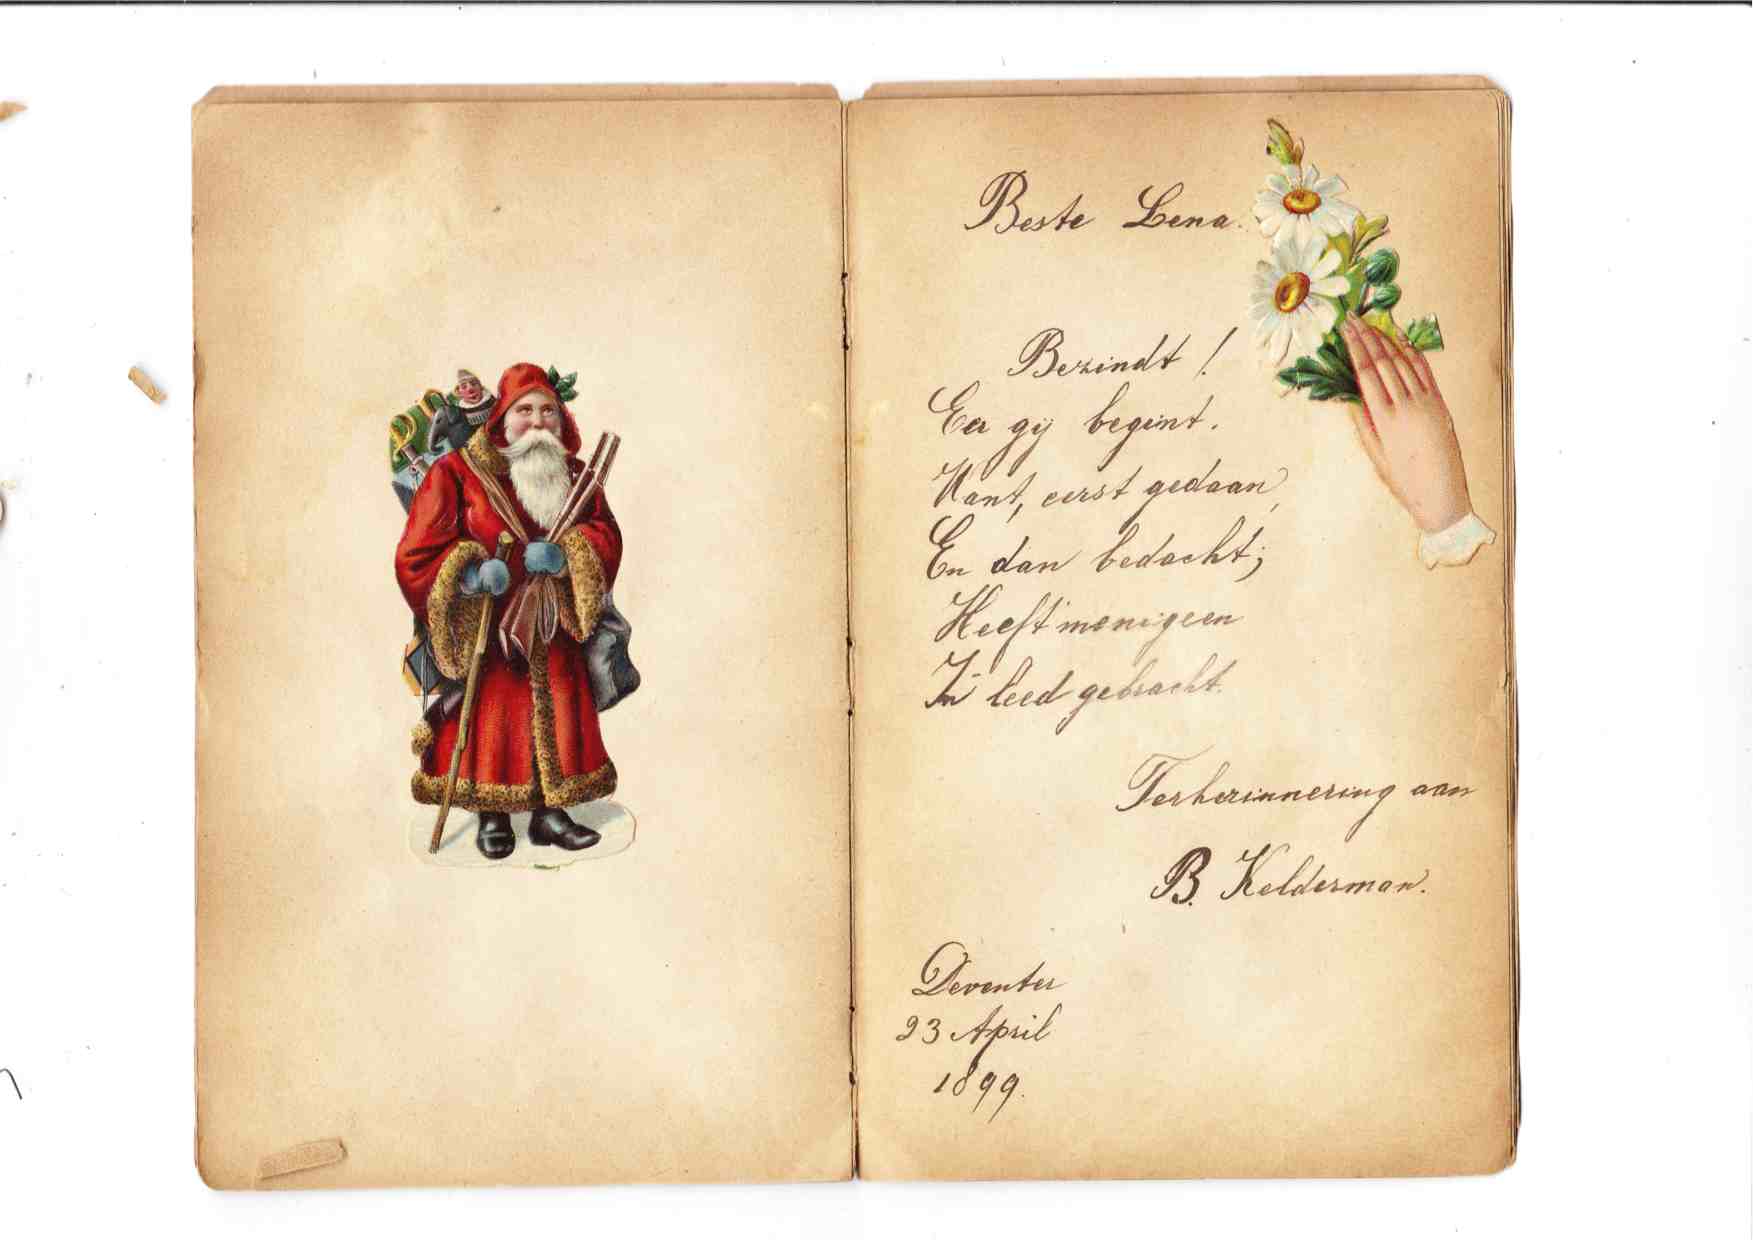 Beste Lena.
Bezindt!
Eer gij begint.
Want, eerst gedaan,
En dan bedacht;
Heeft menigeen
In leed gebracht.
Terherinnering aan
B. Kelderman.
Deventer
23 April
1899.